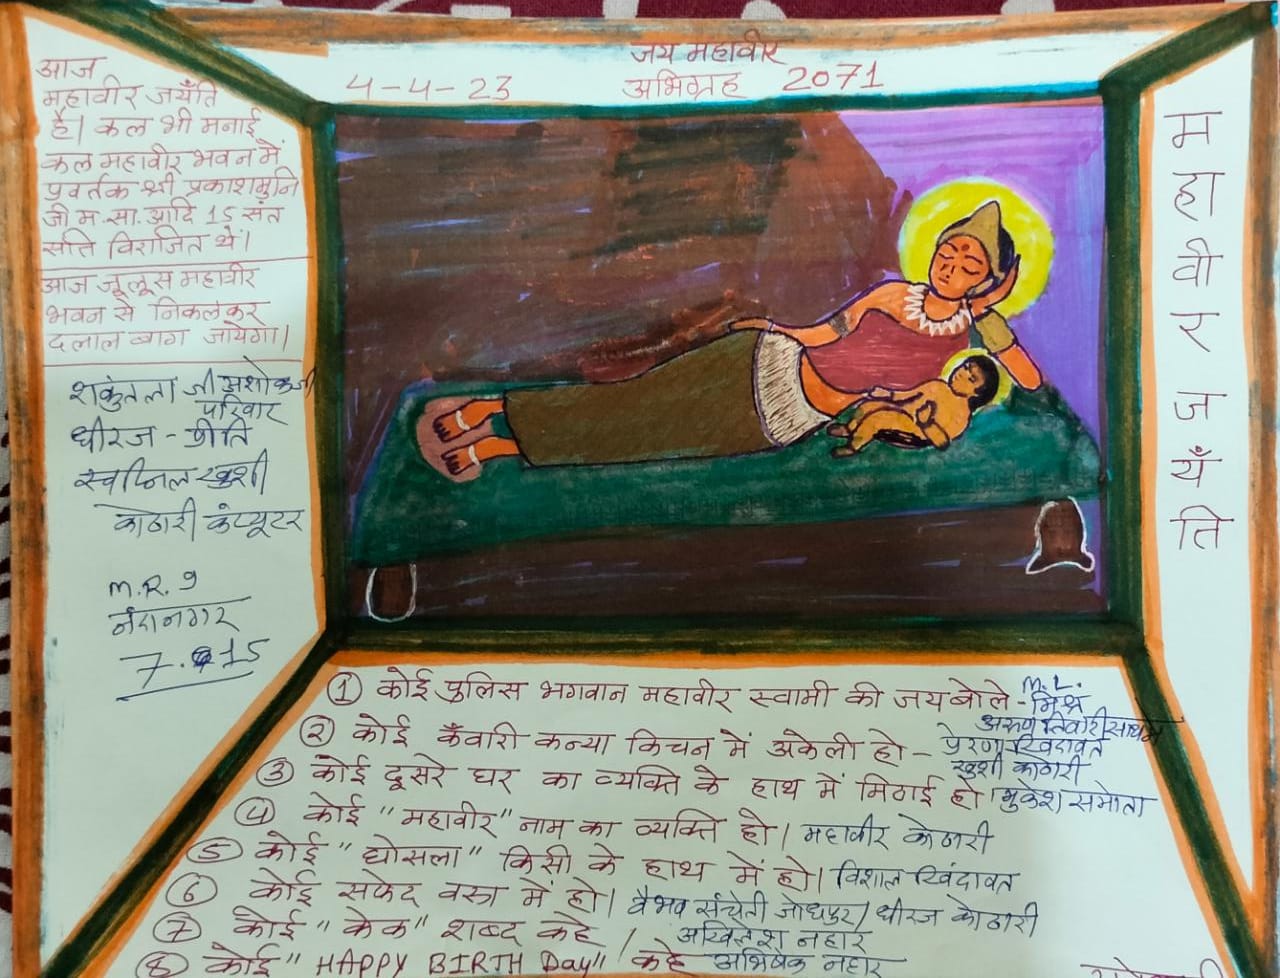 जय महावीर
4-4-23
अभिग्रह 2071
आज
महावीर जयँति
है। कल भी मनाई
कल महावीर भवन में
प्रवर्तक श्री प्रकाशमुनि
जी म.सा. आदि 15 संत
सति विराजित थे।
आज जूलूस महावीर
भवन से निकलकर
दलाल बाग जायेगा।
शकुंतला जी अशोकजी
परिवार
धीरज - प्रीति
स्वप्निल खुशी
कोठारी कंप्यूटर
M.R. 9
नंदानगर
7.15
महावीर जयँति
① कोई पुलिस भगवान महावीर स्वामी की जय बोले - M.L. मिश्र
अरुण तिवारी
② कोई कँवारी कन्या किचन में अकेली हो - प्रेरणा खिंदावत
खुशी कोठारी
③ कोई दूसरे घर का व्यक्ति के हाथ में मिठाई हो। मुकेश समोता
④ कोई "महावीर" नाम का व्यक्ति हो। महावीर कोठारी
⑤ कोई "घोसला" किसी के हाथ में हो। विशाल खिंदावत
⑥ कोई सफेद वस्त्र में हो। वैभव संचेती जोधपुर/धीरज कोठारी
⑦ कोई "केक" शब्द कहे / अखिलेश नहार
⑧ कोई "HAPPY BIRTH Day" कहे अभिषेक नहार